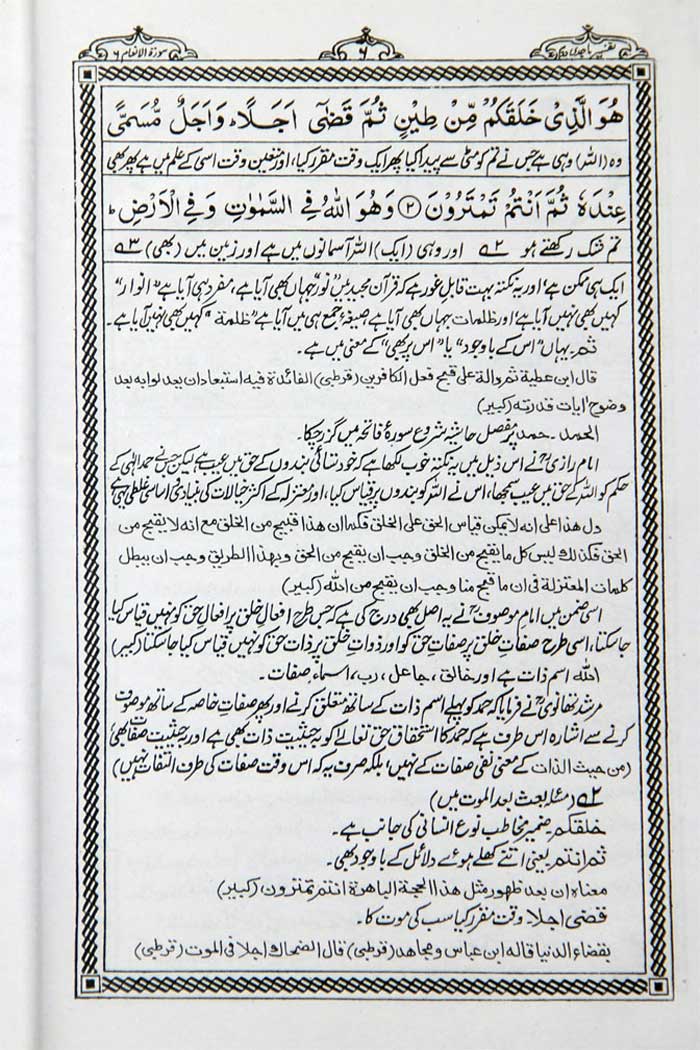 سورۃ الانعام ۶
۶
تفسیر ماجدی
هُوَ الَّذِیْ خَلَقَكُمْ مِّنْ طِیْنٍ ثُمَّ قَضٰۤی اَجَلًا ؕ وَاَجَلٌ مُّسَمًّی
وہ (اللہ) وہی ہے جس نے تم کو مٹی سے پیدا کیا پھر ایک وقت مقرر کیا، اور متعین وقت اسی کے علم میں ہے پھر بھی
عِنْدَهٗ ثُمَّ اَنْتُمْ تَمْتَرُوْنَ ﴿۲﴾ وَهُوَ اللّٰهُ فِی السَّمٰوٰتِ وَفِی الْاَرْضِ ؕ
تم شک رکھتے ہو ۲ اور وہی (ایک) اللہ آسمانوں میں ہے اور زمین میں (بھی) ۳
ایک ہی ممکن ہے اور یہ نکتہ بہت قابلِ غور ہے کہ قرآن مجید میں "نور" جہاں کہیں بھی آیا ہے، مفرد ہی آیا ہے "انوار"
کہیں بھی نہیں آیا ہے اور ظلمات جہاں بھی آیا ہے، صیغۂ جمع ہی میں آیا ہے "ظلمۃ" کہیں بھی نہیں آیا ہے۔
ثم۔ یہاں "اس کے باوجود" یا "اس پر بھی" کے معنی میں ہے۔
قال ابن عطية ثم دالة على قبح فعل الكافرين (قرطبی) الفائدة فيه استبعاد ان يعدلوا به بعد
وضوح اٰيات قدرته (کبیر)
الحمد۔ حمد پر مفصل حاشیہ شروع سورۂ فاتحہ میں گزر چکا۔
امام رازیؒ نے اس ذیل میں یہ نکتہ خوب لکھا ہے کہ خود ستائی بندوں کے حق میں عیب ہے لیکن جس نے حمد الٰہی کے
حکم کو اللہ کے حق میں عیب سمجھا، اس نے اللہ کو بندوں پر قیاس کیا، اور معتزلہ کے اکثر خیالات کی بنیادی و اساسی غلطی یہی ہے
دل هذا على انه لا يمكن قياس الحق على الخلق فكما ان هذا قبيح من الخلق مع انه لا يقبح من
الحق فكذلك ليس كل ما يقبح من الخلق وجب ان يقبح من الحق وبهذا الطريق وجب ان يبطل
كلمات المعتزلة فی ان ما قبح منا وجب ان يقبح من الله (کبیر)
اسی ضمن میں امام موصوفؒ نے یہ اصل بھی درج کی ہے کہ جس طرح افعالِ خلق پر افعالِ حق کو نہیں قیاس کیا
جا سکتا، اسی طرح صفاتِ خلق پر صفاتِ حق کو اور ذواتِ خلق پر ذاتِ حق کو نہیں قیاس کیا جا سکتا (کبیر)
اللہ اسم ذات ہے اور خالق، جاعل، رب، اسماءِ صفات۔
مرشد تھانویؒ نے فرمایا کہ حمد کو پہلے اسم ذات کے ساتھ متعلق کرنے اور پھر صفات خاصہ کے ساتھ موصوف
کرنے سے اشارہ اس طرف ہے کہ حمد کا استحقاق حق تعالےٰ کو بہ حیثیت ذات بھی ہے اور بہ حیثیت صفات بھی
(من حیث الذات کے معنی نفی صفات کے نہیں، بلکہ صرف یہ کہ اس وقت صفات کی طرف التفات نہیں)
۲ (مسئلہ بعث بعد الموت میں)
خلقکم۔ ضمیر مخاطب نوع انسانی کی جانب ہے۔
ثم انتم یعنی اتنے کھلے ہوئے دلائل کے باوجود بھی۔
معناه ان بعد ظهور مثل هذا الحجة الباهرة انتم تمترون (کبیر)
قضٰی اجلا۔ وقت مقرر کیا سب کی موت کا۔
بقضاء الدنيا قاله ابن عباس ومجاهد (قرطبی) قال الضحاك اجلا فی الموت (قرطبی)